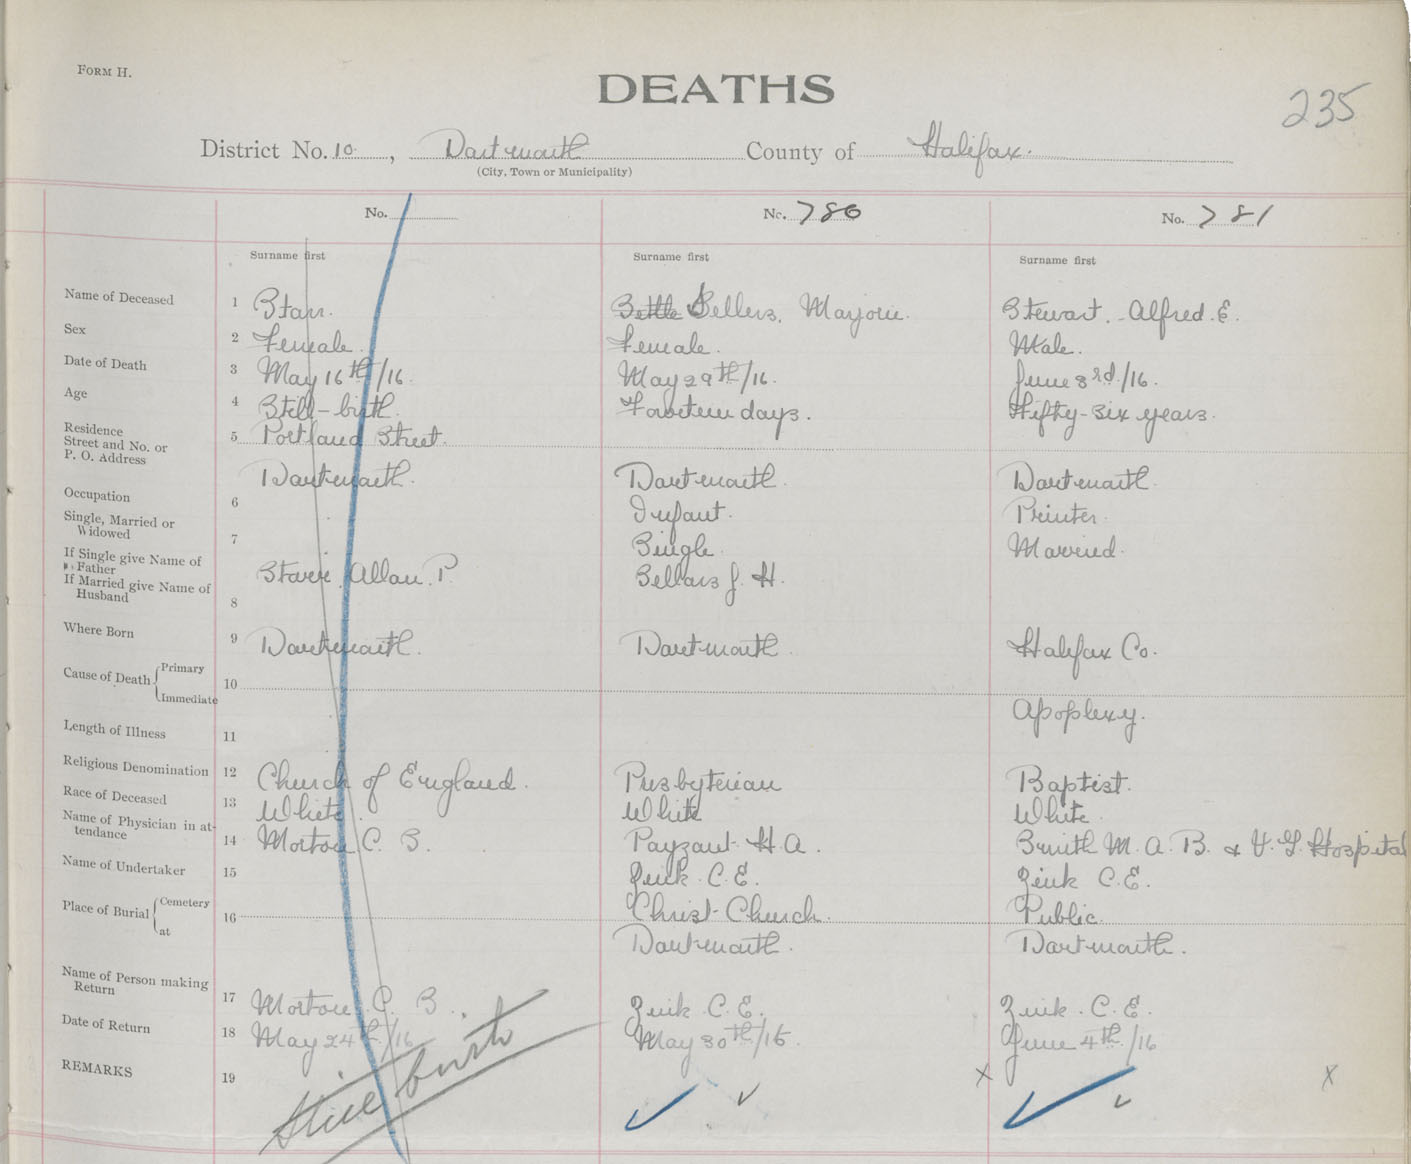 FORM H.
DEATHS
235
District No. 10, Dartmouth County of Halifax.
(City, Town or Municipality)
No.
No. 780
No. 781
Surname first
Surname first
Surname first
Name of Deceased 1 Starr. Settle Sellers, Marjorie. Stewart, Alfred. E.
Sex 2 Female. Female. Male.
Date of Death 3 May 16th/16 May 29th/16. June 3rd/16.
Age 4 Still-birth. Fourteen days. Fifty-six years.
Residence
Street and No. or 5 Portland Street.
P. O. Address
Dartmouth. Dartmouth. Dartmouth.
Occupation 6 Infant. Printer.
Single, Married or
Widowed 7 Single. Married.
If Single give Name of
Father
If Married give Name of
Husband 8 Starr, Allan. P. Sellars J. H.
Where Born 9 Dartmouth. Dartmouth. Halifax Co.
Cause of Death { Primary
10
Immediate Apoplexy.
Length of Illness 11
Religious Denomination 12 Church of England. Presbyterian Baptist.
Race of Deceased 13 White. White White.
Name of Physician in at-
tendance 14 Morton C. S. Payzant H. A. Smith M. A. B. & V. G. Hospital
Name of Undertaker 15 Zink. C. E. Zink C. E.
Place of Burial { Cemetery 16 Christ-Church. Public.
at Dartmouth. Dartmouth.
Name of Person making
Return 17 Morton C. S. Zink. C. E. Zink. C. E.
Date of Return 18 May 24th/16 May 30th/16. June 4th/16
REMARKS 19 x x
Still birth